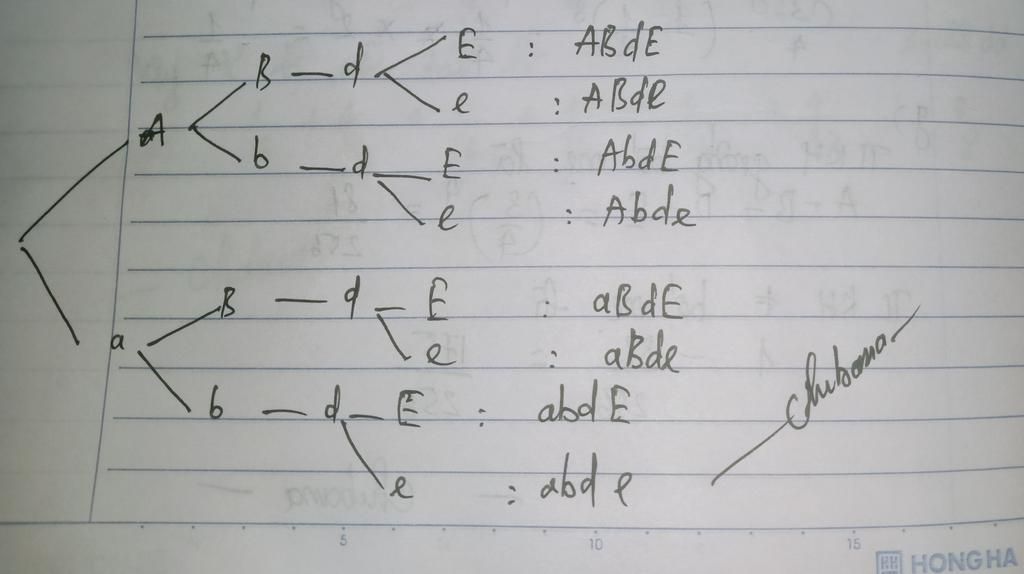 E : ABdE
B — d
e : ABde
A
b — d — E : AbdE
e : Abde
B — d — E : aBdE
a
e : aBde
b — d — E : abdE
e : abde
Chibana
5 10 15
HONG HA